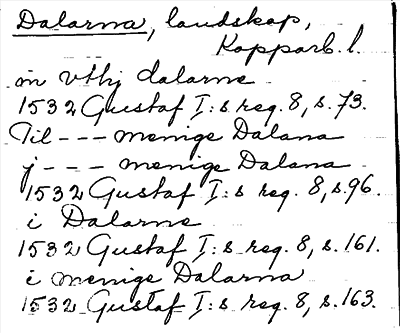 Dalarna, landskap,
Kopparb. l.
in vthj dalarne
1532 Gustaf I:s reg. 8, s. 73.
Til --- menige Dalana
j --- menige Dalana
1532 Gustaf I:s reg. 8, s. 96.
i Dalarne
1532 Gustaf I:s reg. 8, s. 161.
i menige Dalarna
1532 Gustaf I:s reg. 8, s. 163.